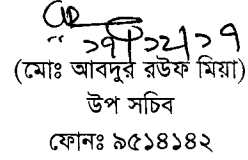 ১৭/১২/১৭
(মোঃ আবদুর রউফ মিয়া)
উপ সচিব
ফোনঃ ৯৫১৪১৪২